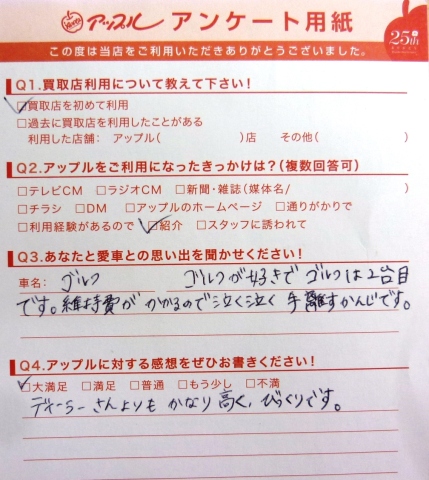 アップル アンケート用紙
25th
この度は当店をご利用いただきありがとうございました。
Q1.買取店利用について教えて下さい!
☑買取店を初めて利用
□過去に買取店を利用したことがある
利用した店舗： アップル( )店 その他( )
Q2.アップルをご利用になったきっかけは?(複数回答可)
□テレビCM □ラジオCM □新聞・雑誌(媒体名/ )
□チラシ □DM □アップルのホームページ □通りがかりで
□利用経験があるので ☑紹介 □スタッフに誘われて
Q3.あなたと愛車との思い出を聞かせください!
車名： ゴルフ ゴルフが好きでゴルフは2台目
です。維持費がかかるので泣く泣く手離すかんじです。
Q4.アップルに対する感想をぜひお書きください!
☑大満足 □満足 □普通 □もう少し □不満
ディーラーさんよりもかなり高く、びっくりです。